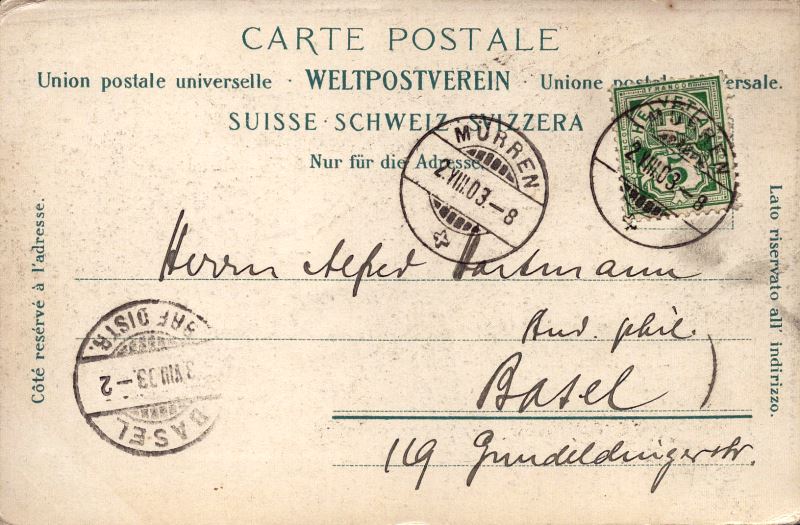 CARTE POSTALE
Union postale universelle · WELTPOSTVEREIN · Unione postale universale.
SUISSE · SCHWEIZ · SVIZZERA
Nur für die Adresse.
FRANCO
HELVETIA
5
MÜRREN
2.VIII.03.–8
MÜRREN
2.VIII.03.–8
Côté reservé à l'adresse.
Lato riservato all' indirizzo.
Herrn Alfred Hartmann
phil.
Basel
119 Gundeldingerstr.
BASEL
3.VIII.03.–2
BRF. DISTR.